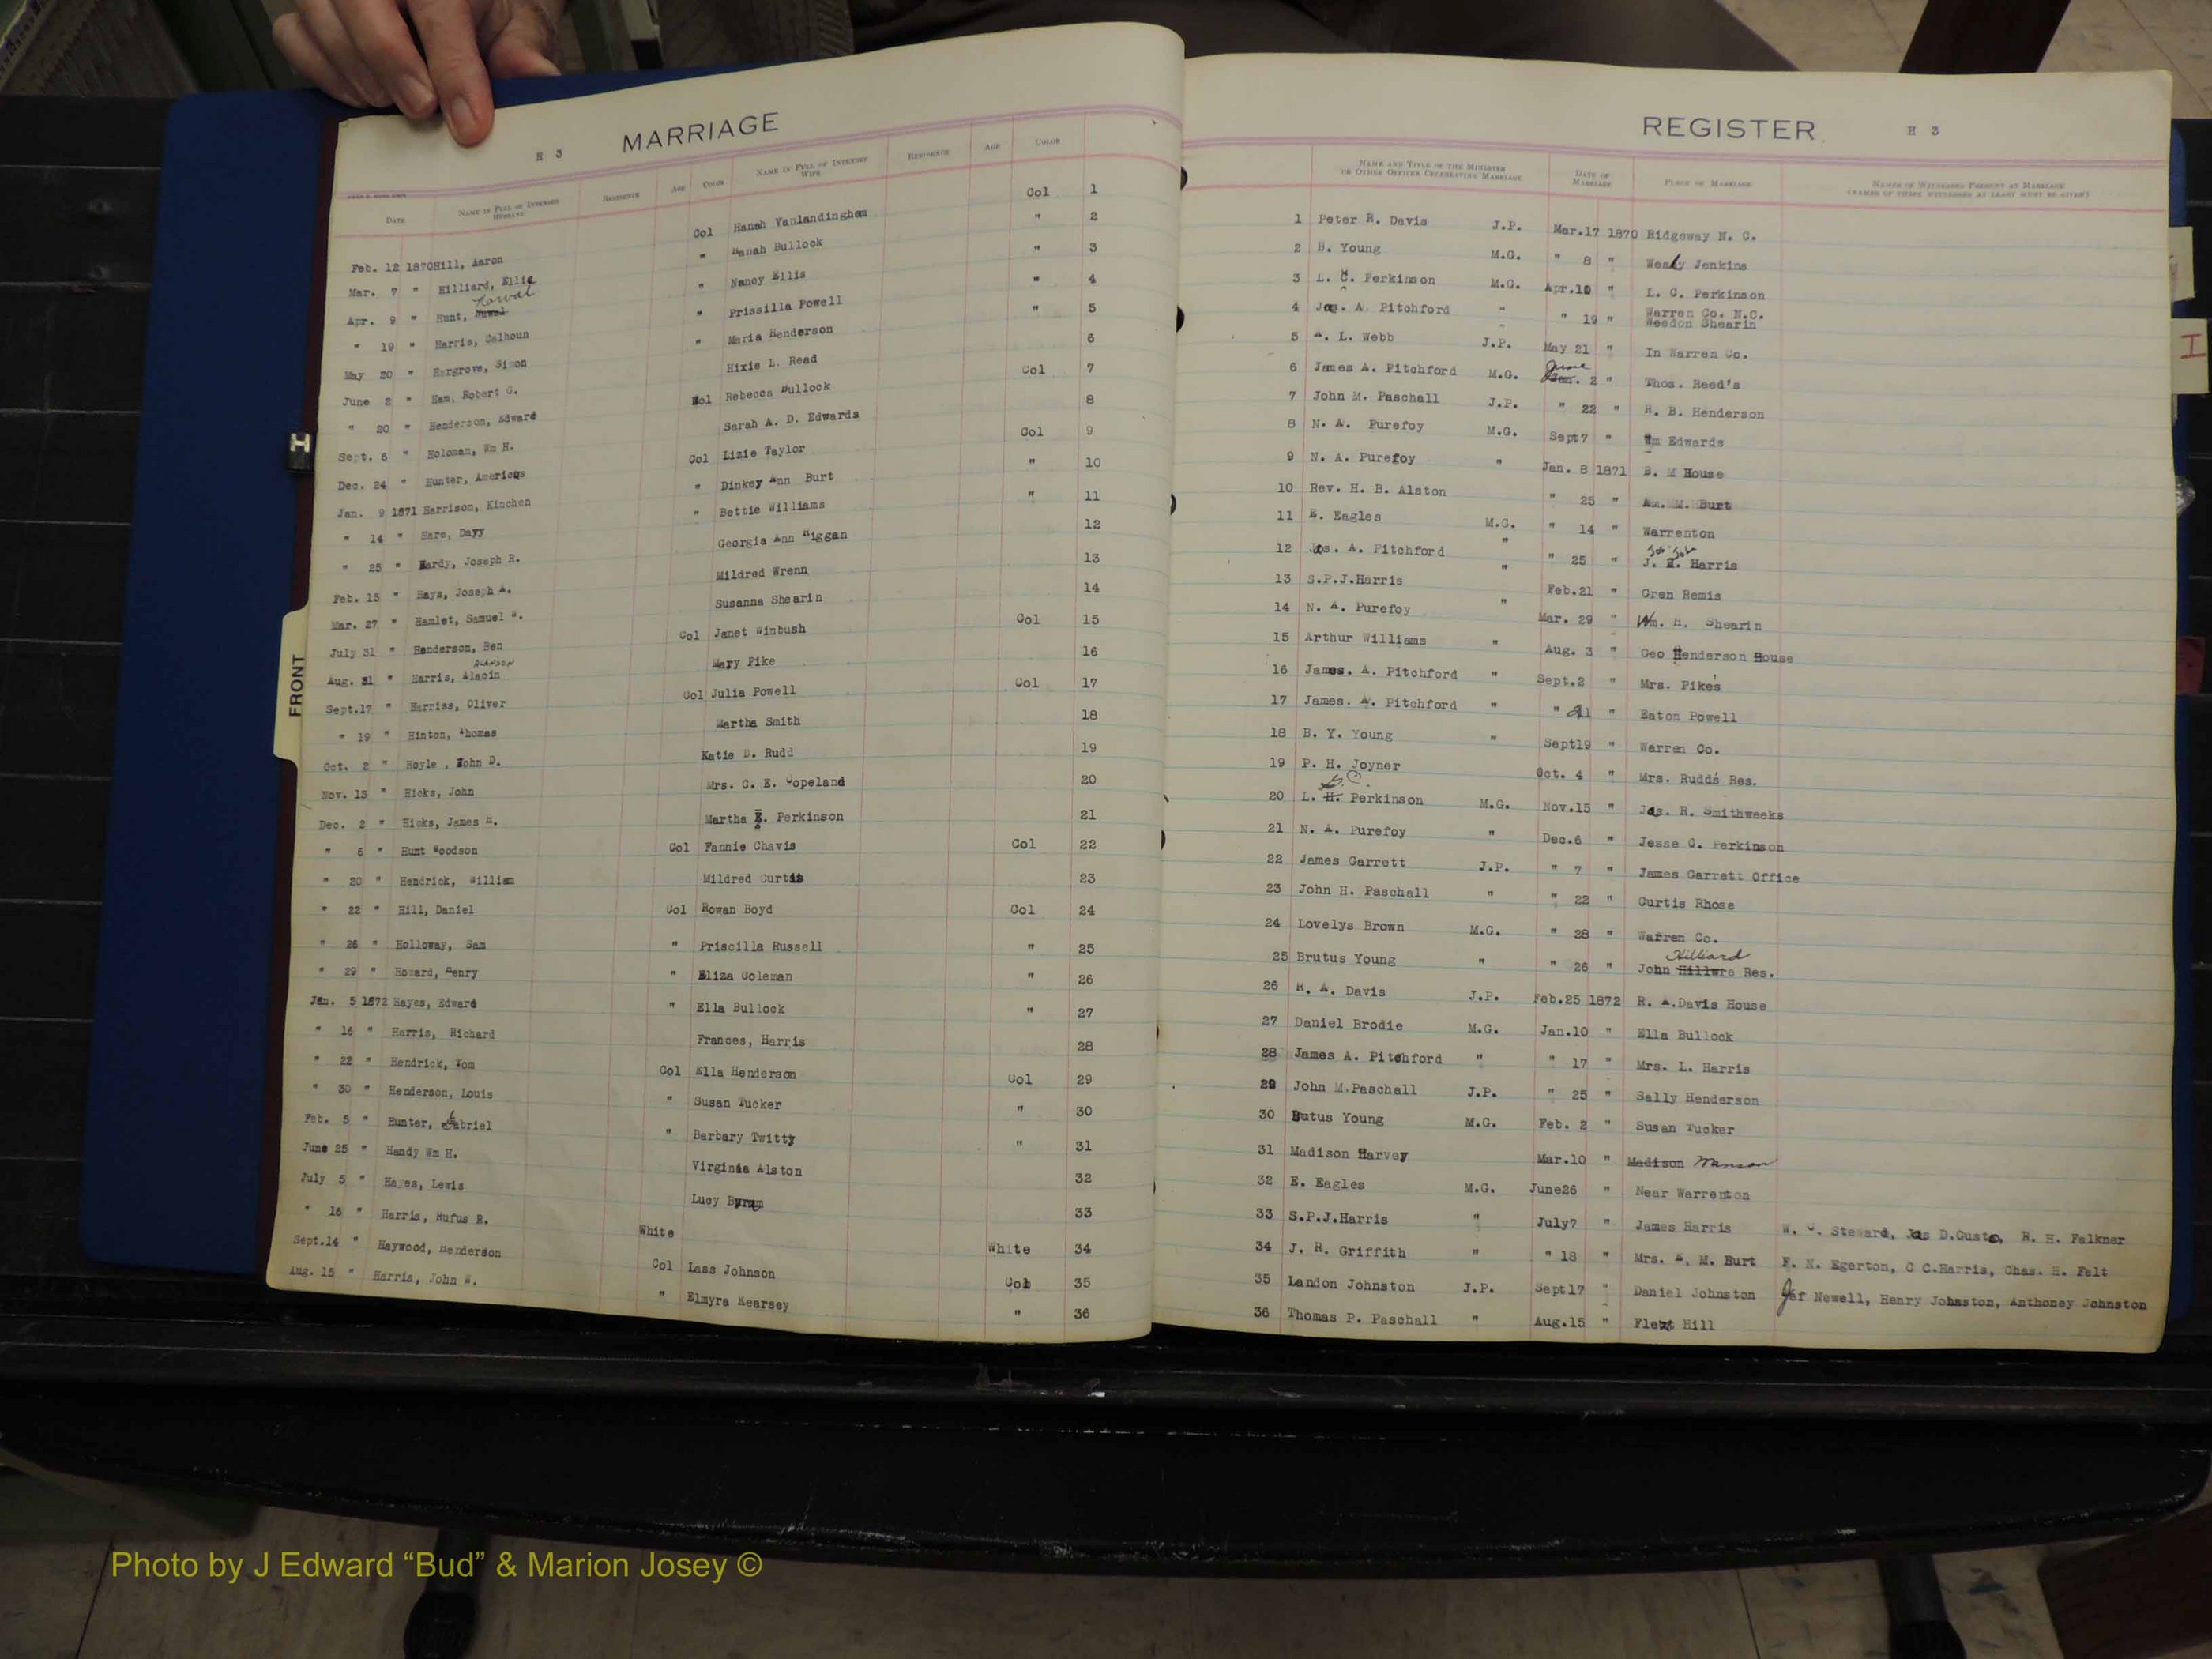 H 3 MARRIAGE
DATE NAME IN FULL OF INTENDED HUSBAND RESIDENCE AGE COLOR NAME IN FULL OF INTENDED WIFE RESIDENCE AGE COLOR
Feb. 12 1870 Hill, Aaron Col Hanah Vanlandingham Col 1
Mar. 7 " Hilliard, Ellie " Hanah Bullock " 2
Apr. 9 " Hunt, " Nancy Ellis " 3
" 19 " Harris, Calhoun " Prissilla Powell " 4
May 20 " Hargrove, Simon " Maria Henderson " 5
June 2 " Ham, Robert C. Hixie L. Read 6
" 20 " Henderson, Edward Col Rebecca Bullock Col 7
Sept. 6 " Holoman, Wm H. Sarah A. D. Edwards 8
Dec. 24 " Hunter, Americus Col Lizie Taylor Col 9
Jan. 9 1871 Harrison, Kinchen " Dinkey Ann Burt " 10
" 14 " Hare, Davy " Bettie Williams " 11
" 25 " Hardy, Joseph R. Georgia Ann Riggan 12
Feb. 15 " Hays, Joseph A. Mildred Wrenn 13
Mar. 27 " Hamlet, Samuel Susanna Shearin 14
July 31 " Henderson, Ben Col Janet Winbush Col 15
Alanson
Aug. 31 " Harris, Alacin Mary Pike 16
Sept.17 " Harriss, Oliver Col Julia Powell Col 17
" 19 " Hinton, Thomas Martha Smith 18
Oct. 2 " Hoyle , John D. Katie D. Rudd 19
Nov. 15 " Hicks, John Mrs. C. E. Copeland 20
Dec. 2 " Hicks, James H. Martha E. Perkinson 21
" 6 " Hunt Woodson Col Fannie Chavis Col 22
" 20 " Hendrick, William Mildred Curtis 23
" 22 " Hill, Daniel Col Rowan Boyd Col 24
" 26 " Holloway, Sam " Priscilla Russell " 25
" 29 " Howard, Henry " Eliza Coleman " 26
Jan. 5 1872 Hayes, Edward " Ella Bullock " 27
" 16 " Harris, Richard Frances, Harris 28
" 22 " Hendrick, Tom Col Ella Henderson Col 29
" 30 " Henderson, Louis " Susan Tucker " 30
Feb. 5 " Hunter, Gabriel " Barbary Twitty " 31
June 25 " Handy Wm H. Virginia Alston 32
July 5 " Hayes, Lewis Lucy Byrum 33
" 16 " Harris, Rufus R. White White 34
Sept.14 " Haywood, Henderson Col Lass Johnson Col 35
Aug. 15 " Harris, John W. " Elmyra Kearsey " 36
REGISTER H 3
NAME AND TITLE OF THE MINISTER OR OTHER OFFICER CELEBRATING MARRIAGE DATE OF MARRIAGE PLACE OF MARRIAGE NAMES OF WITNESSES PRESENT AT MARRIAGE (NAMES OF THREE WITNESSES AT LEAST MUST BE GIVEN)
1 Peter R. Davis J.P. Mar.17 1870 Ridgeway N. C.
2 B. Young M.G. " 8 " Wesly Jenkins
3 L. C. Perkinson M.G. Apr.10 " L. C. Perkinson
4 Jas. A. Pitchford " " 19 " Warren Co. N.C.
Weedon Shearin
5 A. L. Webb J.P. May 21 " In Warren Co.
June
6 James A. Pitchford M.G. Jan. 2 " Thos. Reed's
7 John M. Paschall J.P. " 22 " R. B. Henderson
8 N. A. Purefoy M.G. Sept7 " Wm Edwards
9 N. A. Purefoy " Jan. 8 1871 B. M House
10 Rev. H. B. Alston " 25 " M. Burt
11 E. Eagles M.G. " 14 " Warrenton
12 Jas. A. Pitchford " " 25 " Harris
13 S.P.J.Harris " Feb.21 " Gren Remis
14 N. A. Purefoy " Mar. 29 " Wm. H. Shearin
15 Arthur Williams " Aug. 3 " Geo Henderson House
16 James. A. Pitchford " Sept.2 " Mrs. Pike's
17 James. A. Pitchford " " 21 " Eaton Powell
18 B. Y. Young " Sept19 " Warren Co.
19 P. H. Joyner Oct. 4 " Mrs. Rudd's Res.
C.
20 L. H. Perkinson M.G. Nov.15 " Jas. R. Smithweeks
21 N. A. Purefoy " Dec.6 " Jesse C. Perkinson
22 James Garrett J.P. " 7 " James Garrett Office
23 John H. Paschall " " 22 " Curtis Rhose
24 Lovelys Brown M.G. " 28 " Warren Co.
Hilliard
25 Brutus Young " " 26 " John Hillwre Res.
26 R. A. Davis J.P. Feb.25 1872 R. A.Davis House
27 Daniel Brodie M.G. Jan.10 " Ella Bullock
28 James A. Pitchford " " 17 " Mrs. L. Harris
29 John M.Paschall J.P. " 25 " Sally Henderson
30 Butus Young M.G. Feb. 2 " Susan Tucker
31 Madison Harvey Mar.10 " Madison
32 E. Eagles M.G. June26 " Near Warrenton
33 S.P.J.Harris " July7 " James Harris W. C. Steward, Jas D.Gusto, R. H. Falkner
34 J. R. Griffith " " 18 " Mrs. A. M. Burt F. N. Egerton, C C.Harris, Chas. H. Felt
35 Landon Johnston J.P. Sept17 " Daniel Johnston Jef Newell, Henry Johnston, Anthoney Johnston
36 Thomas P. Paschall " Aug.15 " Flent Hill
H
FRONT
I
Photo by J Edward “Bud” & Marion Josey ©